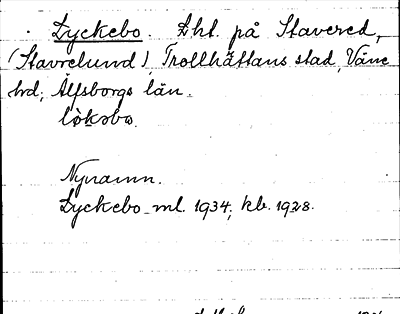 Lyckebo. Lht. på Stavered,
(Stavrelund), Trollhättans stad, Väne
hd, Älfsborgs län.
lỳkəbo.
Nynamn.
Lyckebo ml. 1934; kb. 1928.